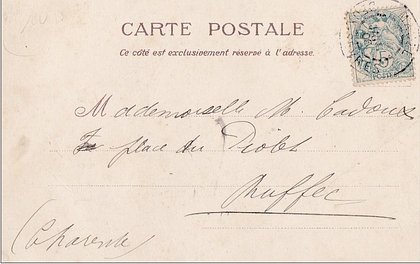 CARTE POSTALE
Ce côté est exclusivement réservé à l'adresse.
Mademoiselle M. Cadoux
place du Piolet
Ruffec
(Charente)